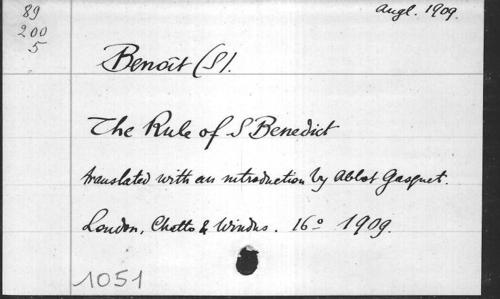 89
200
5
Angl. 1909.
Benoît (S).
The Rule of S Benedict
translated with an introduction by Abbot Gasquet.
London, Chatto & Windus. 16º 1909.
1051